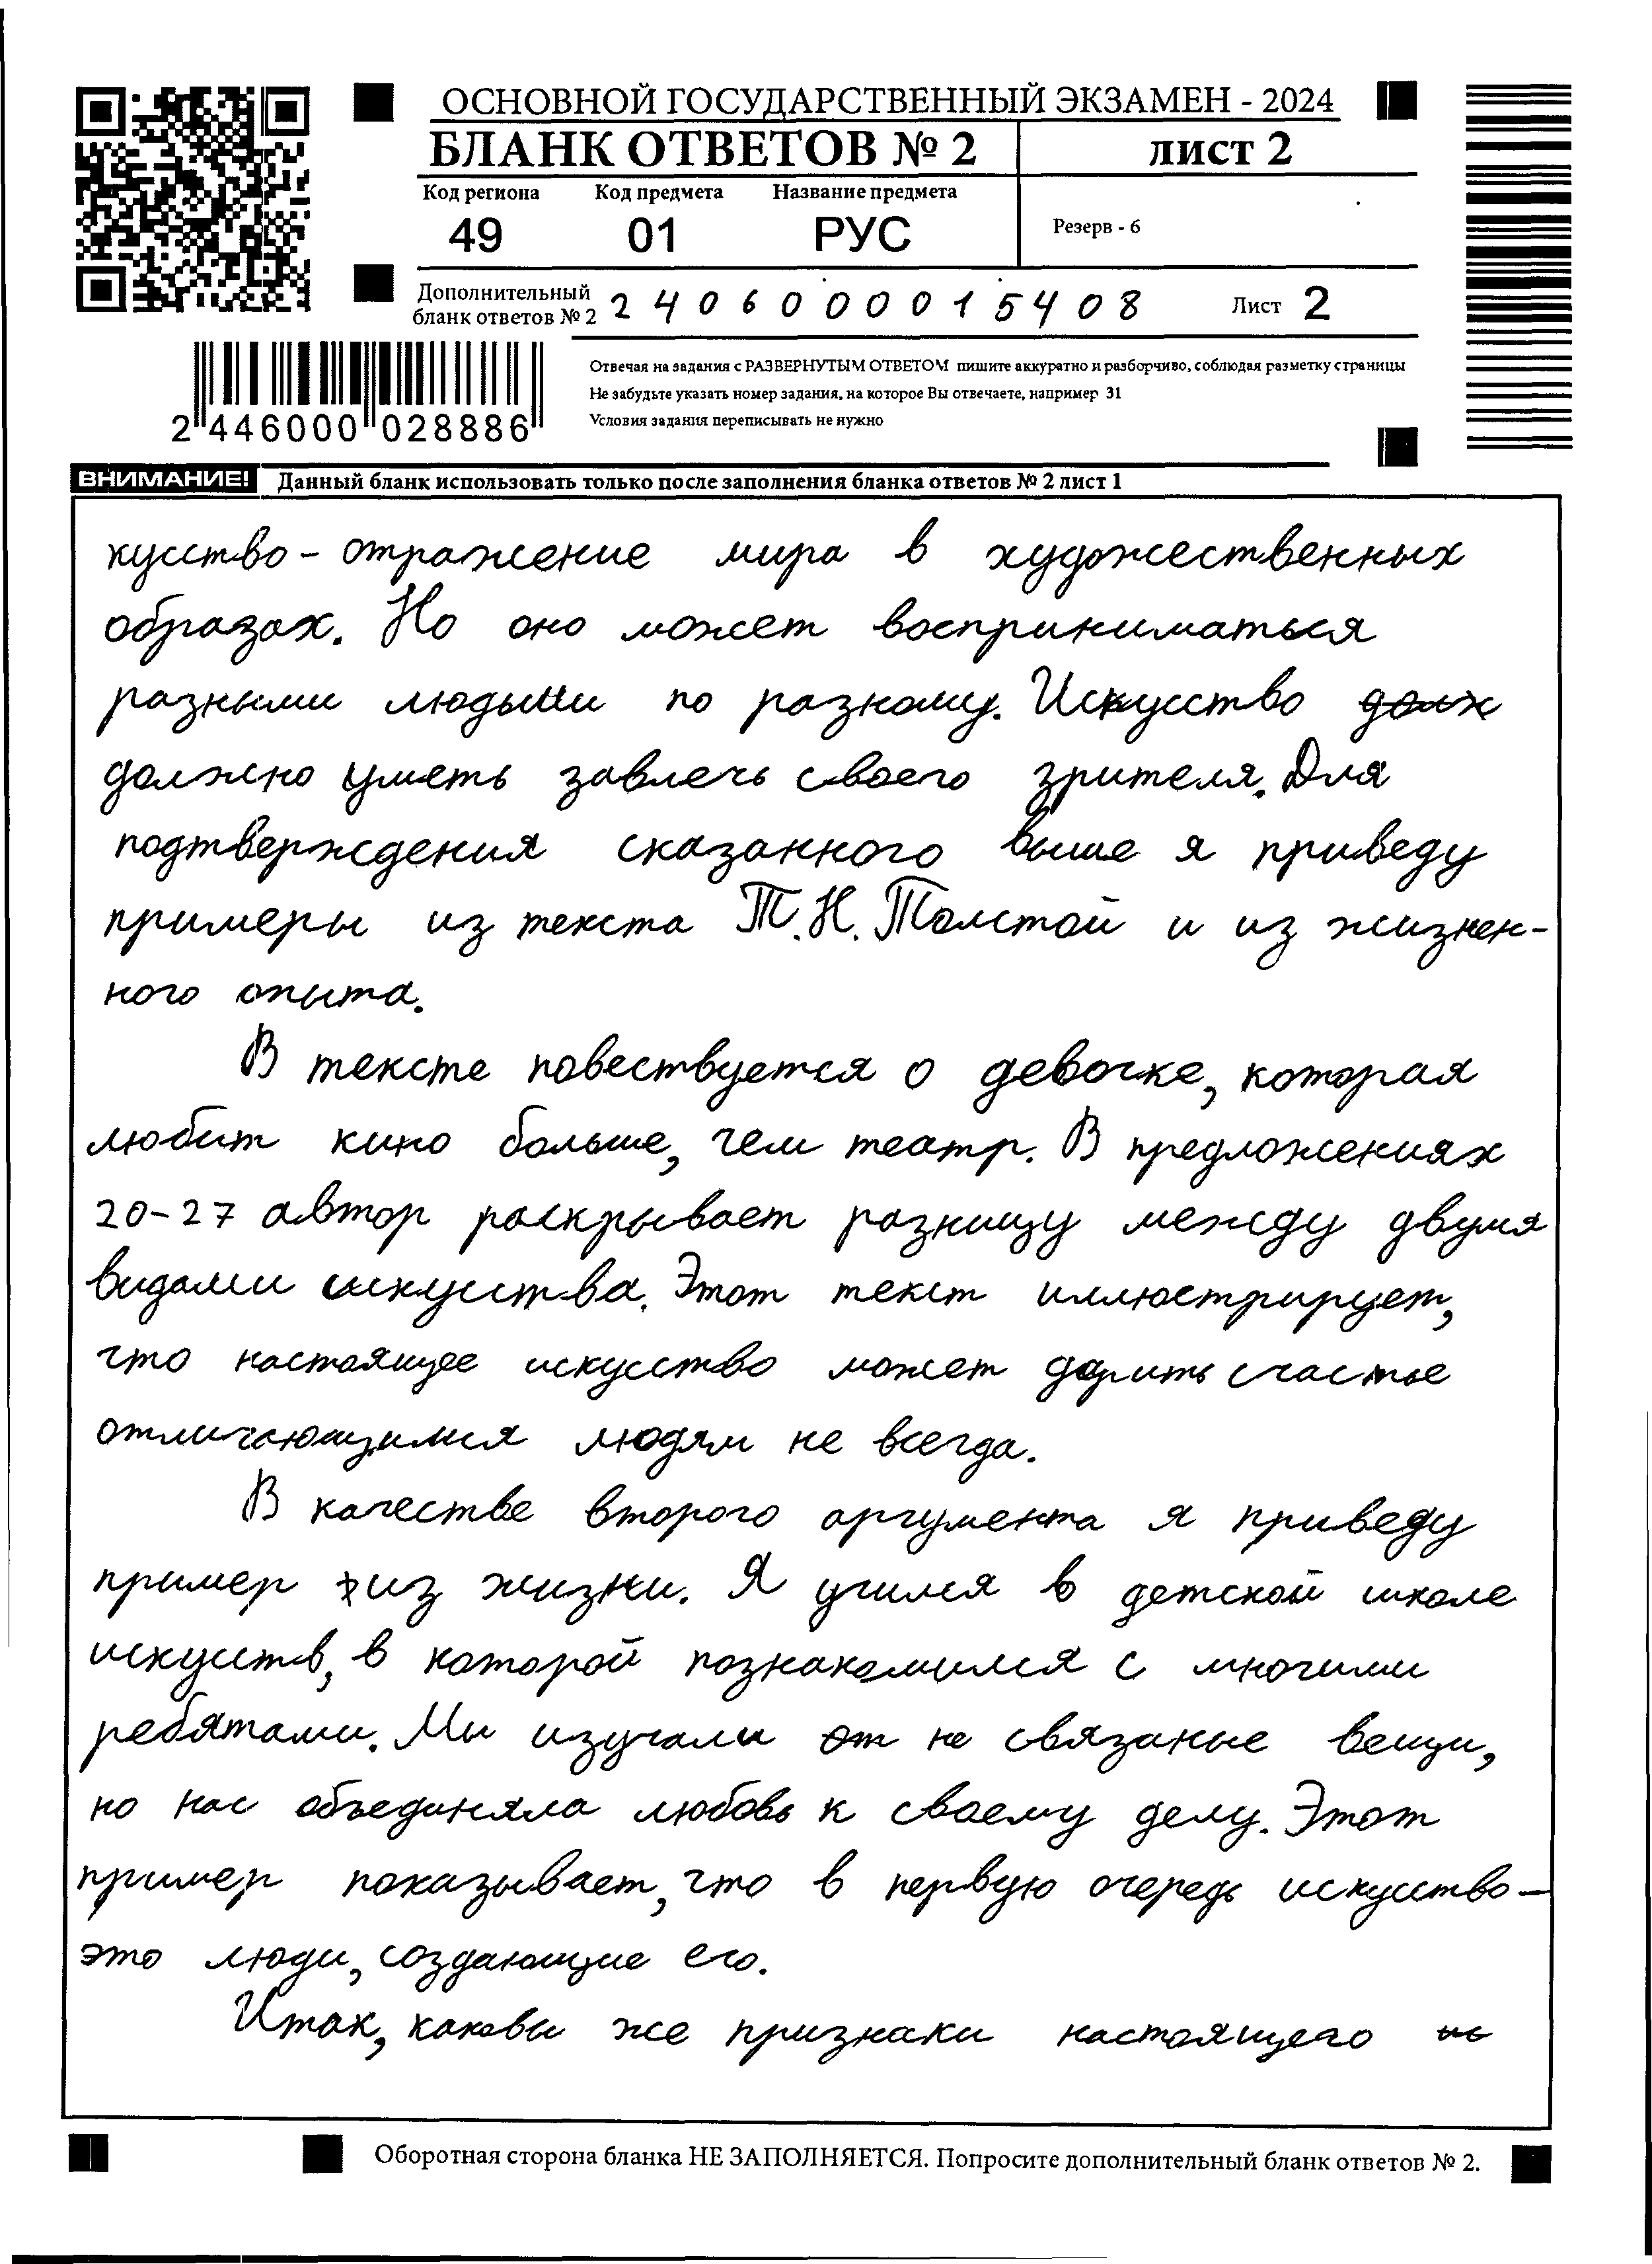 ОСНОВНОЙ ГОСУДАРСТВЕННЫЙ ЭКЗАМЕН - 2024
БЛАНК ОТВЕТОВ № 2
ЛИСТ 2
Код региона Код предмета Название предмета
49 01 РУС
Резерв - 6
Дополнительный бланк ответов № 2 2406000015408
Лист 2
2 446000 028886
Отвечая на задания с РАЗВЕРНУТЫМ ОТВЕТОМ пишите аккуратно и разборчиво, соблюдая разметку страницы
Не забудьте указать номер задания, на которое Вы отвечаете, например 31
Условия задания переписывать не нужно
ВНИМАНИЕ! Данный бланк использовать только после заполнения бланка ответов № 2 лист 1
кусство - отражение мира в художественных
образах. Но оно может восприниматься
разными людьми по разному. Искусство долж
должно уметь завлечь своего зрителя. Для
подтверждения сказанного выше я приведу
примеры из текста Т.Н.Толстой и из жизнен-
ного опыта.
В тексте повествуется о девочке, которая
любит кино больше, чем театр. В предложениях
20-27 автор раскрывает разницу между двумя
видами искусства. Этот текст иллюстрирует,
что настоящее искусство может дарить счастье
отличающимся людям не всегда.
В качестве второго аргумента я приведу
пример из жизни. Я учился в детской школе
искуств, в которой познакомился с многими
ребятами. Мы изучали от не связаные вещи,
но нас объединяла любовь к своему делу. Этот
пример показывает, что в первую очередь искусство -
это люди, создающие его.
Итак, каковы же признаки настоящего ис
Оборотная сторона бланка НЕ ЗАПОЛНЯЕТСЯ. Попросите дополнительный бланк ответов № 2.